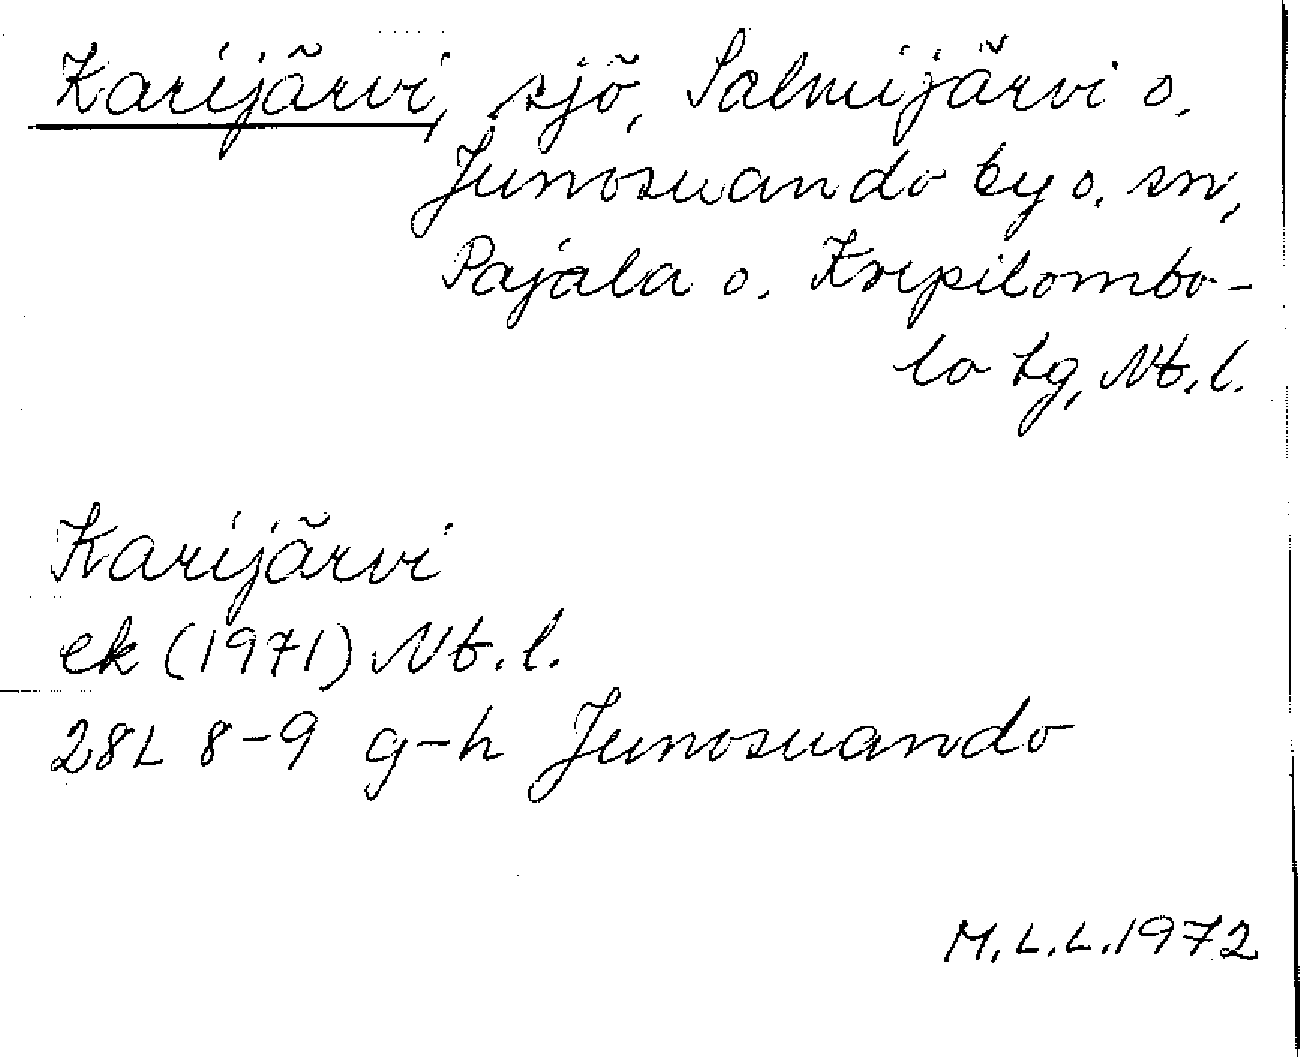 Karijärvi, sjö, Salmijärvi o.
Junosuando by o. sn,
Pajala o. Korpilombo-
lo tg, Nb.l.
Karijärvi
ek (1971) Nb.l.
28L 8-9 g-h Junosuando
M.L.L.1972